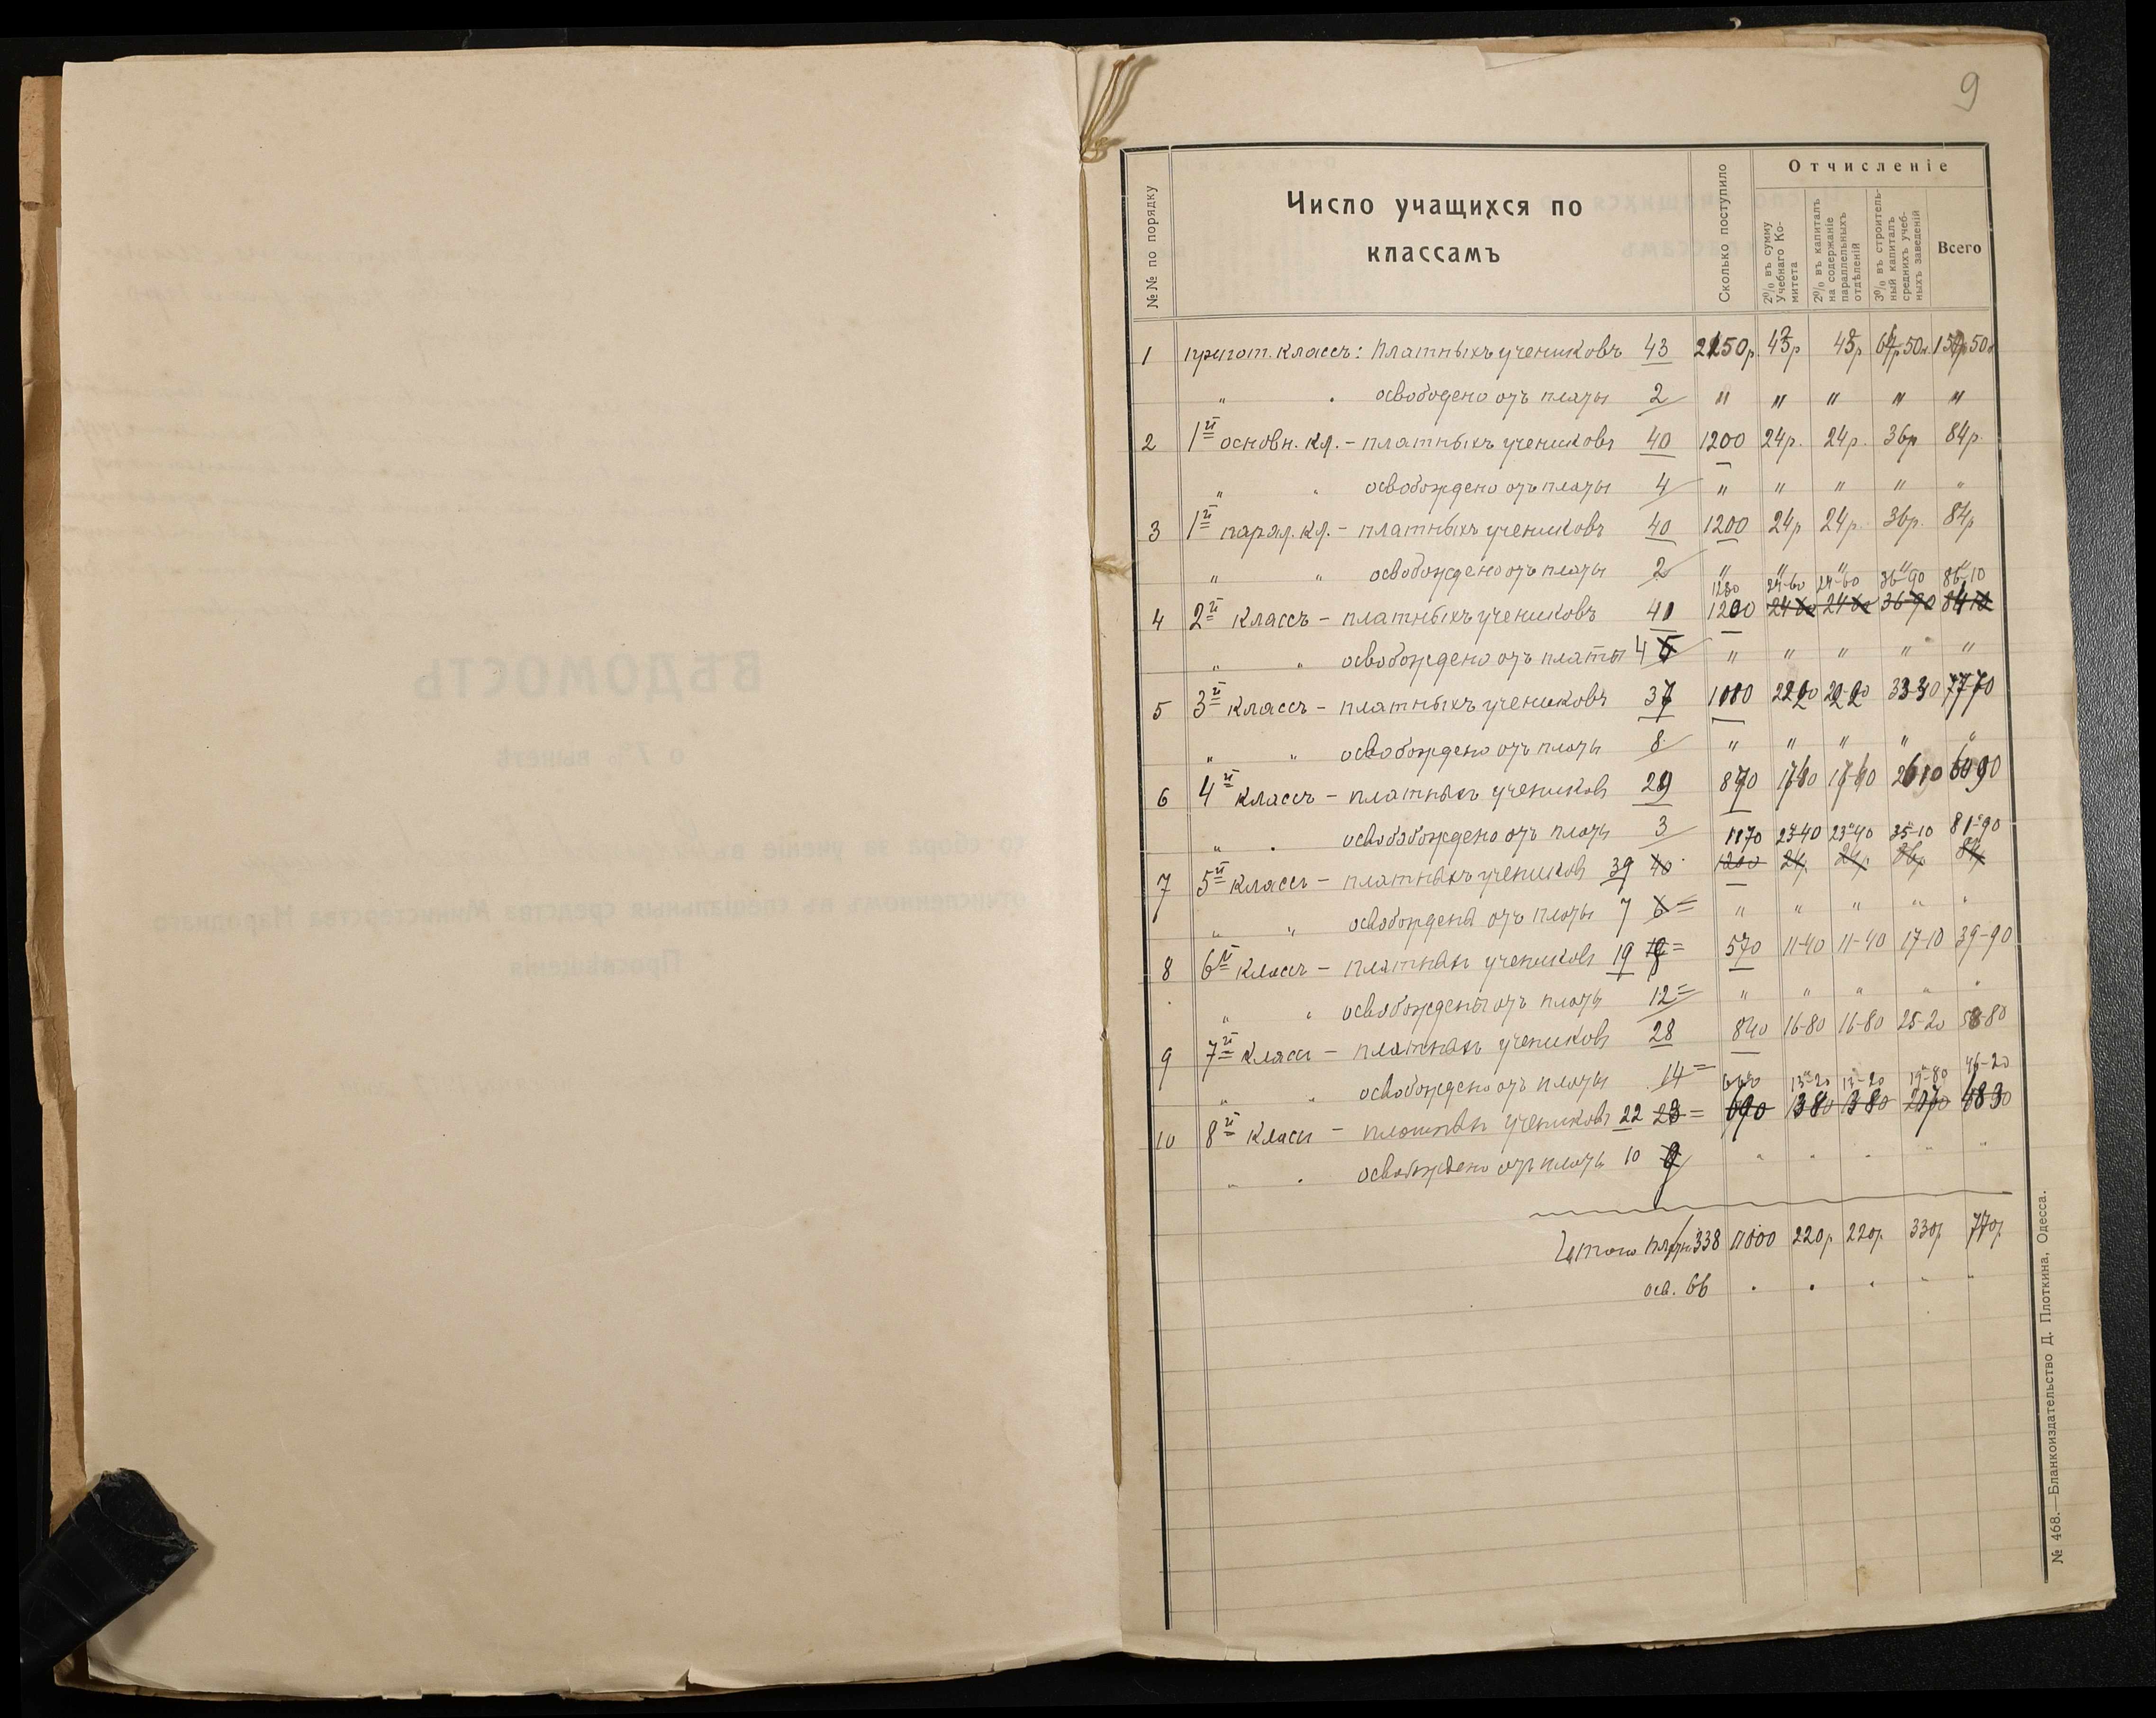 9
№№ по порядку
Число учащихся по
классамъ
Сколько поступило
Отчисленіе
2% въ сумму
Учебнаго Ко-
митета
2% въ капиталъ
на содержаніе
параллельныхъ
отдѣленій
3% въ строитель-
ный капиталъ
среднихъ учеб-
ныхъ заведеній
Всего
1 пригот. классъ: платныхъ учениковъ 43 2150р. 43р 43р 64р 50к 150р 50к
" " освободено отъ платы 2 " " " " "
2 1й основн. кл. - платныхъ учениковъ 40 1200 24р. 24р. 36р 84р.
" " освобождено отъ платы 4 " " " " "
3 1й парал. кл. - платныхъ учениковъ 40 1200 24р 24р. 36р. 84р
" " освобождено отъ платы 2 " " " " "
1230 24-60 24-60 36-90 86-10
4 2й классъ - платныхъ учениковъ 41 1200
" " освобождено отъ платы 4 " " " " "
5 3й классъ - платныхъ учениковъ 37 1110 22-20 22-20 33-30 77-70
" " освобождено отъ платы 8 " " " " "
6 4й классъ - платныхъ учениковъ 29 870 17-40 17-40 26 10 60 90
" " освобобождено отъ платы 3
1170 23-40 23-40 35-10 81-90
7 5й классъ - платныхъ учениковъ 39 40 1200 24р. 24р. 36р. 84р
" " освобождены отъ платы 7 6 " " " " "
8 6й классъ - платныхъ учениковъ 19 570 11-40 11-40 17-10 39-90
" " освобождены отъ платы 12 " " " " "
9 7й классъ - платныхъ учениковъ 28 840 16-80 16-80 25-20 58-80
" " освобождено отъ платы 14
660 13-20 13-20 19-80 46-20
10 8й классъ - платныхъ учениковъ 22 23 690 13 80 13 80 20 70 48 30
" " освобождено отъ платы 10 9 " " " " "
Итого платн. 338 11000 220р. 220р. 330р. 770р.
осв. 66 " " " " "
№ 468.—Бланкоиздательство Д. Плоткина, Одесса.